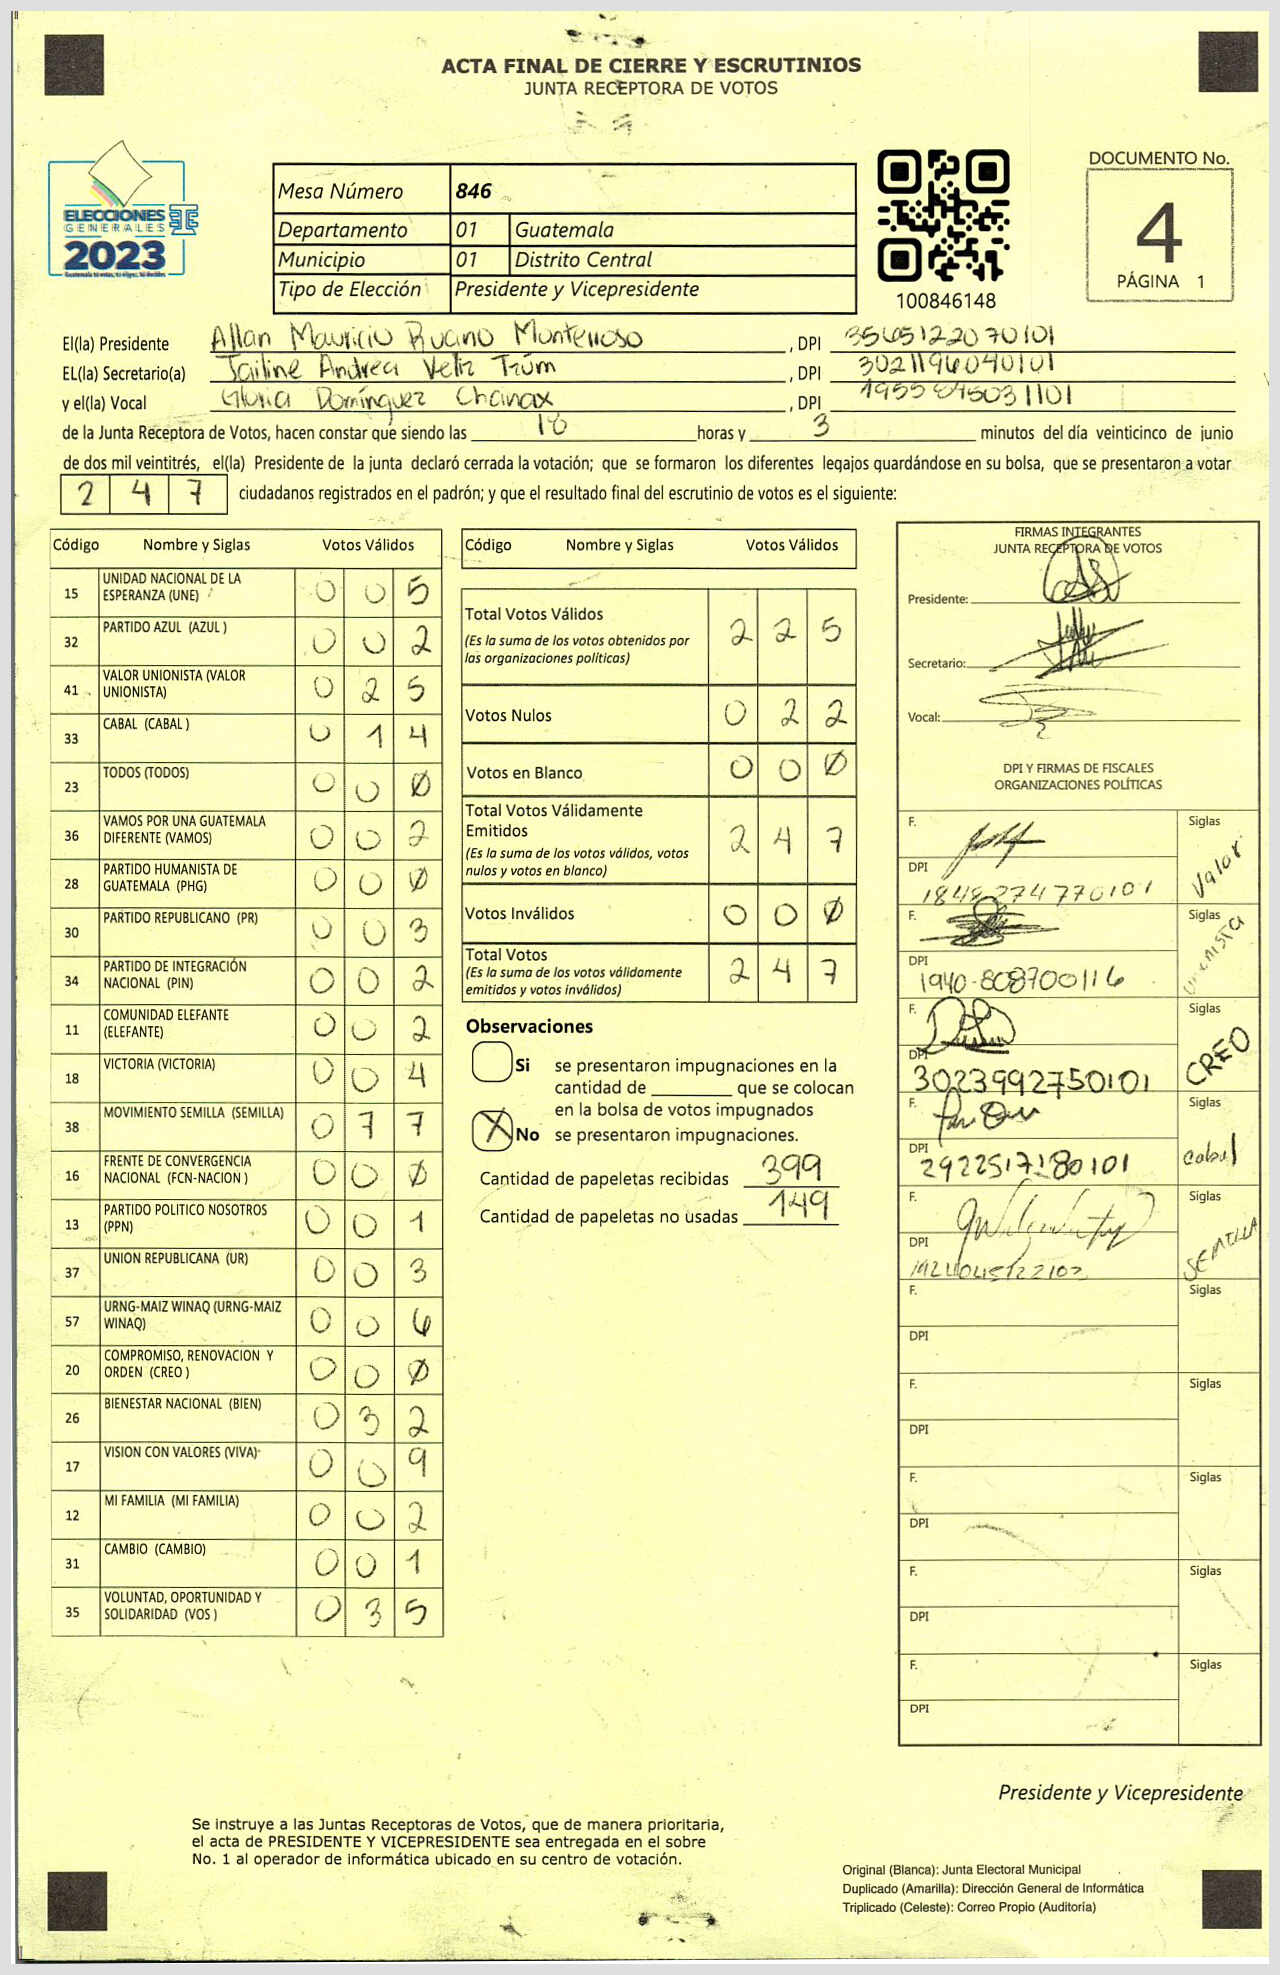 ACTA FINAL DE CIERRE Y ESCRUTINIOS
JUNTA RECEPTORA DE VOTOS
ELECCIONES
GENERALES
2023
Mesa Número 846
Departamento 01 Guatemala
Municipio 01 Distrito Central
Tipo de Elección Presidente y Vicepresidente
100846148
DOCUMENTO No.
4
PÁGINA 1
El(la) Presidente Allan Mauricio Ruano Monterroso, DPI 3565122070101
EL(la) Secretario(a) Jailine Andrea Veliz Trúm, DPI 3021196040101
y el(la) Vocal Gloria Domínguez Chanax, DPI
de la Junta Receptora de Votos, hacen constar que siendo las 18 horas y 3 minutos del día veinticinco de junio
de dos mil veintitrés, el(la) Presidente de la junta declaró cerrada la votación; que se formaron los diferentes legajos guardándose en su bolsa, que se presentaron a votar
2 4 7 ciudadanos registrados en el padrón; y que el resultado final del escrutinio de votos es el siguiente:
Código Nombre y Siglas Votos Válidos
15 UNIDAD NACIONAL DE LA ESPERANZA (UNE) 0 0 5
32 PARTIDO AZUL (AZUL ) 0 0 2
41 VALOR UNIONISTA (VALOR UNIONISTA) 0 2 5
33 CABAL (CABAL ) 0 1 4
23 TODOS (TODOS) 0 0 0
36 VAMOS POR UNA GUATEMALA DIFERENTE (VAMOS) 0 0 2
28 PARTIDO HUMANISTA DE GUATEMALA (PHG) 0 0 0
30 PARTIDO REPUBLICANO (PR) 0 0 3
34 PARTIDO DE INTEGRACIÓN NACIONAL (PIN) 0 0 2
11 COMUNIDAD ELEFANTE (ELEFANTE) 0 0 2
18 VICTORIA (VICTORIA) 0 0 4
38 MOVIMIENTO SEMILLA (SEMILLA) 0 7 7
16 FRENTE DE CONVERGENCIA NACIONAL (FCN-NACION ) 0 0 0
13 PARTIDO POLITICO NOSOTROS (PPN) 0 0 1
37 UNION REPUBLICANA (UR) 0 0 3
57 URNG-MAIZ WINAQ (URNG-MAIZ WINAQ) 0 0 6
20 COMPROMISO, RENOVACION Y ORDEN (CREO ) 0 0 0
26 BIENESTAR NACIONAL (BIEN) 0 3 2
17 VISION CON VALORES (VIVA) 0 0 9
12 MI FAMILIA (MI FAMILIA) 0 0 2
31 CAMBIO (CAMBIO) 0 0 1
35 VOLUNTAD, OPORTUNIDAD Y SOLIDARIDAD (VOS ) 0 3 5
Código Nombre y Siglas Votos Válidos
Total Votos Válidos 2 2 5
(Es la suma de los votos obtenidos por las organizaciones políticas)
Votos Nulos 0 2 2
Votos en Blanco 0 0 0
Total Votos Válidamente Emitidos 2 4 7
(Es la suma de los votos válidos, votos nulos y votos en blanco)
Votos Inválidos 0 0 0
Total Votos 2 4 7
(Es la suma de los votos válidamente emitidos y votos inválidos)
Observaciones
Si se presentaron impugnaciones en la
cantidad de ________ que se colocan
en la bolsa de votos impugnados
X No se presentaron impugnaciones.
Cantidad de papeletas recibidas 399
Cantidad de papeletas no usadas 149
FIRMAS INTEGRANTES
JUNTA RECEPTORA DE VOTOS
Presidente:
Secretario:
Vocal:
DPI Y FIRMAS DE FISCALES
ORGANIZACIONES POLÍTICAS
F. Siglas Valor
DPI 1848274770101
F. Siglas Unionista
DPI 1940-808700116
F. Siglas CREO
DPI 3023992750101
F. Siglas Cabal
DPI 2922517180101
F. Siglas SEMILLA
DPI
F. Siglas
DPI
F. Siglas
DPI
F. Siglas
DPI
F. Siglas
DPI
F. Siglas
DPI
Presidente y Vicepresidente
Se instruye a las Juntas Receptoras de Votos, que de manera prioritaria,
el acta de PRESIDENTE Y VICEPRESIDENTE sea entregada en el sobre
No. 1 al operador de informática ubicado en su centro de votación.
Original (Blanca): Junta Electoral Municipal
Duplicado (Amarilla): Dirección General de Informática
Triplicado (Celeste): Correo Propio (Auditoría)